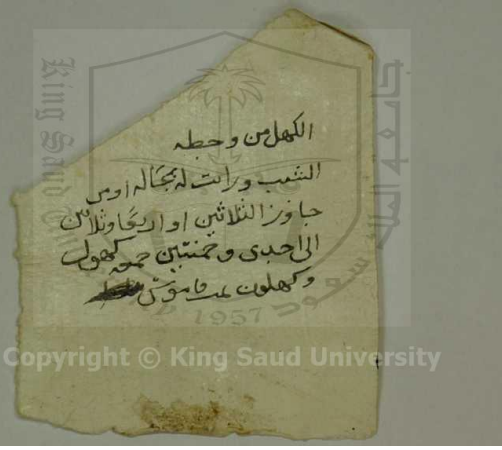 الكهل من وخطه
الشيب ورايت له بجالة او من
جاوز الثلاثين او اربعا وثلاثين
الى احدى وخمسين جمعه كهول
وكهلون قاموس
King Saud University
1957
Copyright © King Saud University